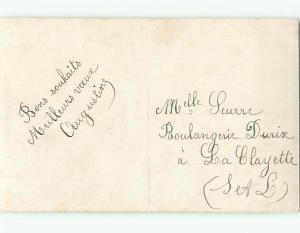 Bons souhaits
Meilleurs vœux
Augustine
Melle Seurre
Boulangerie Durix
à La Clayette
(S & L)